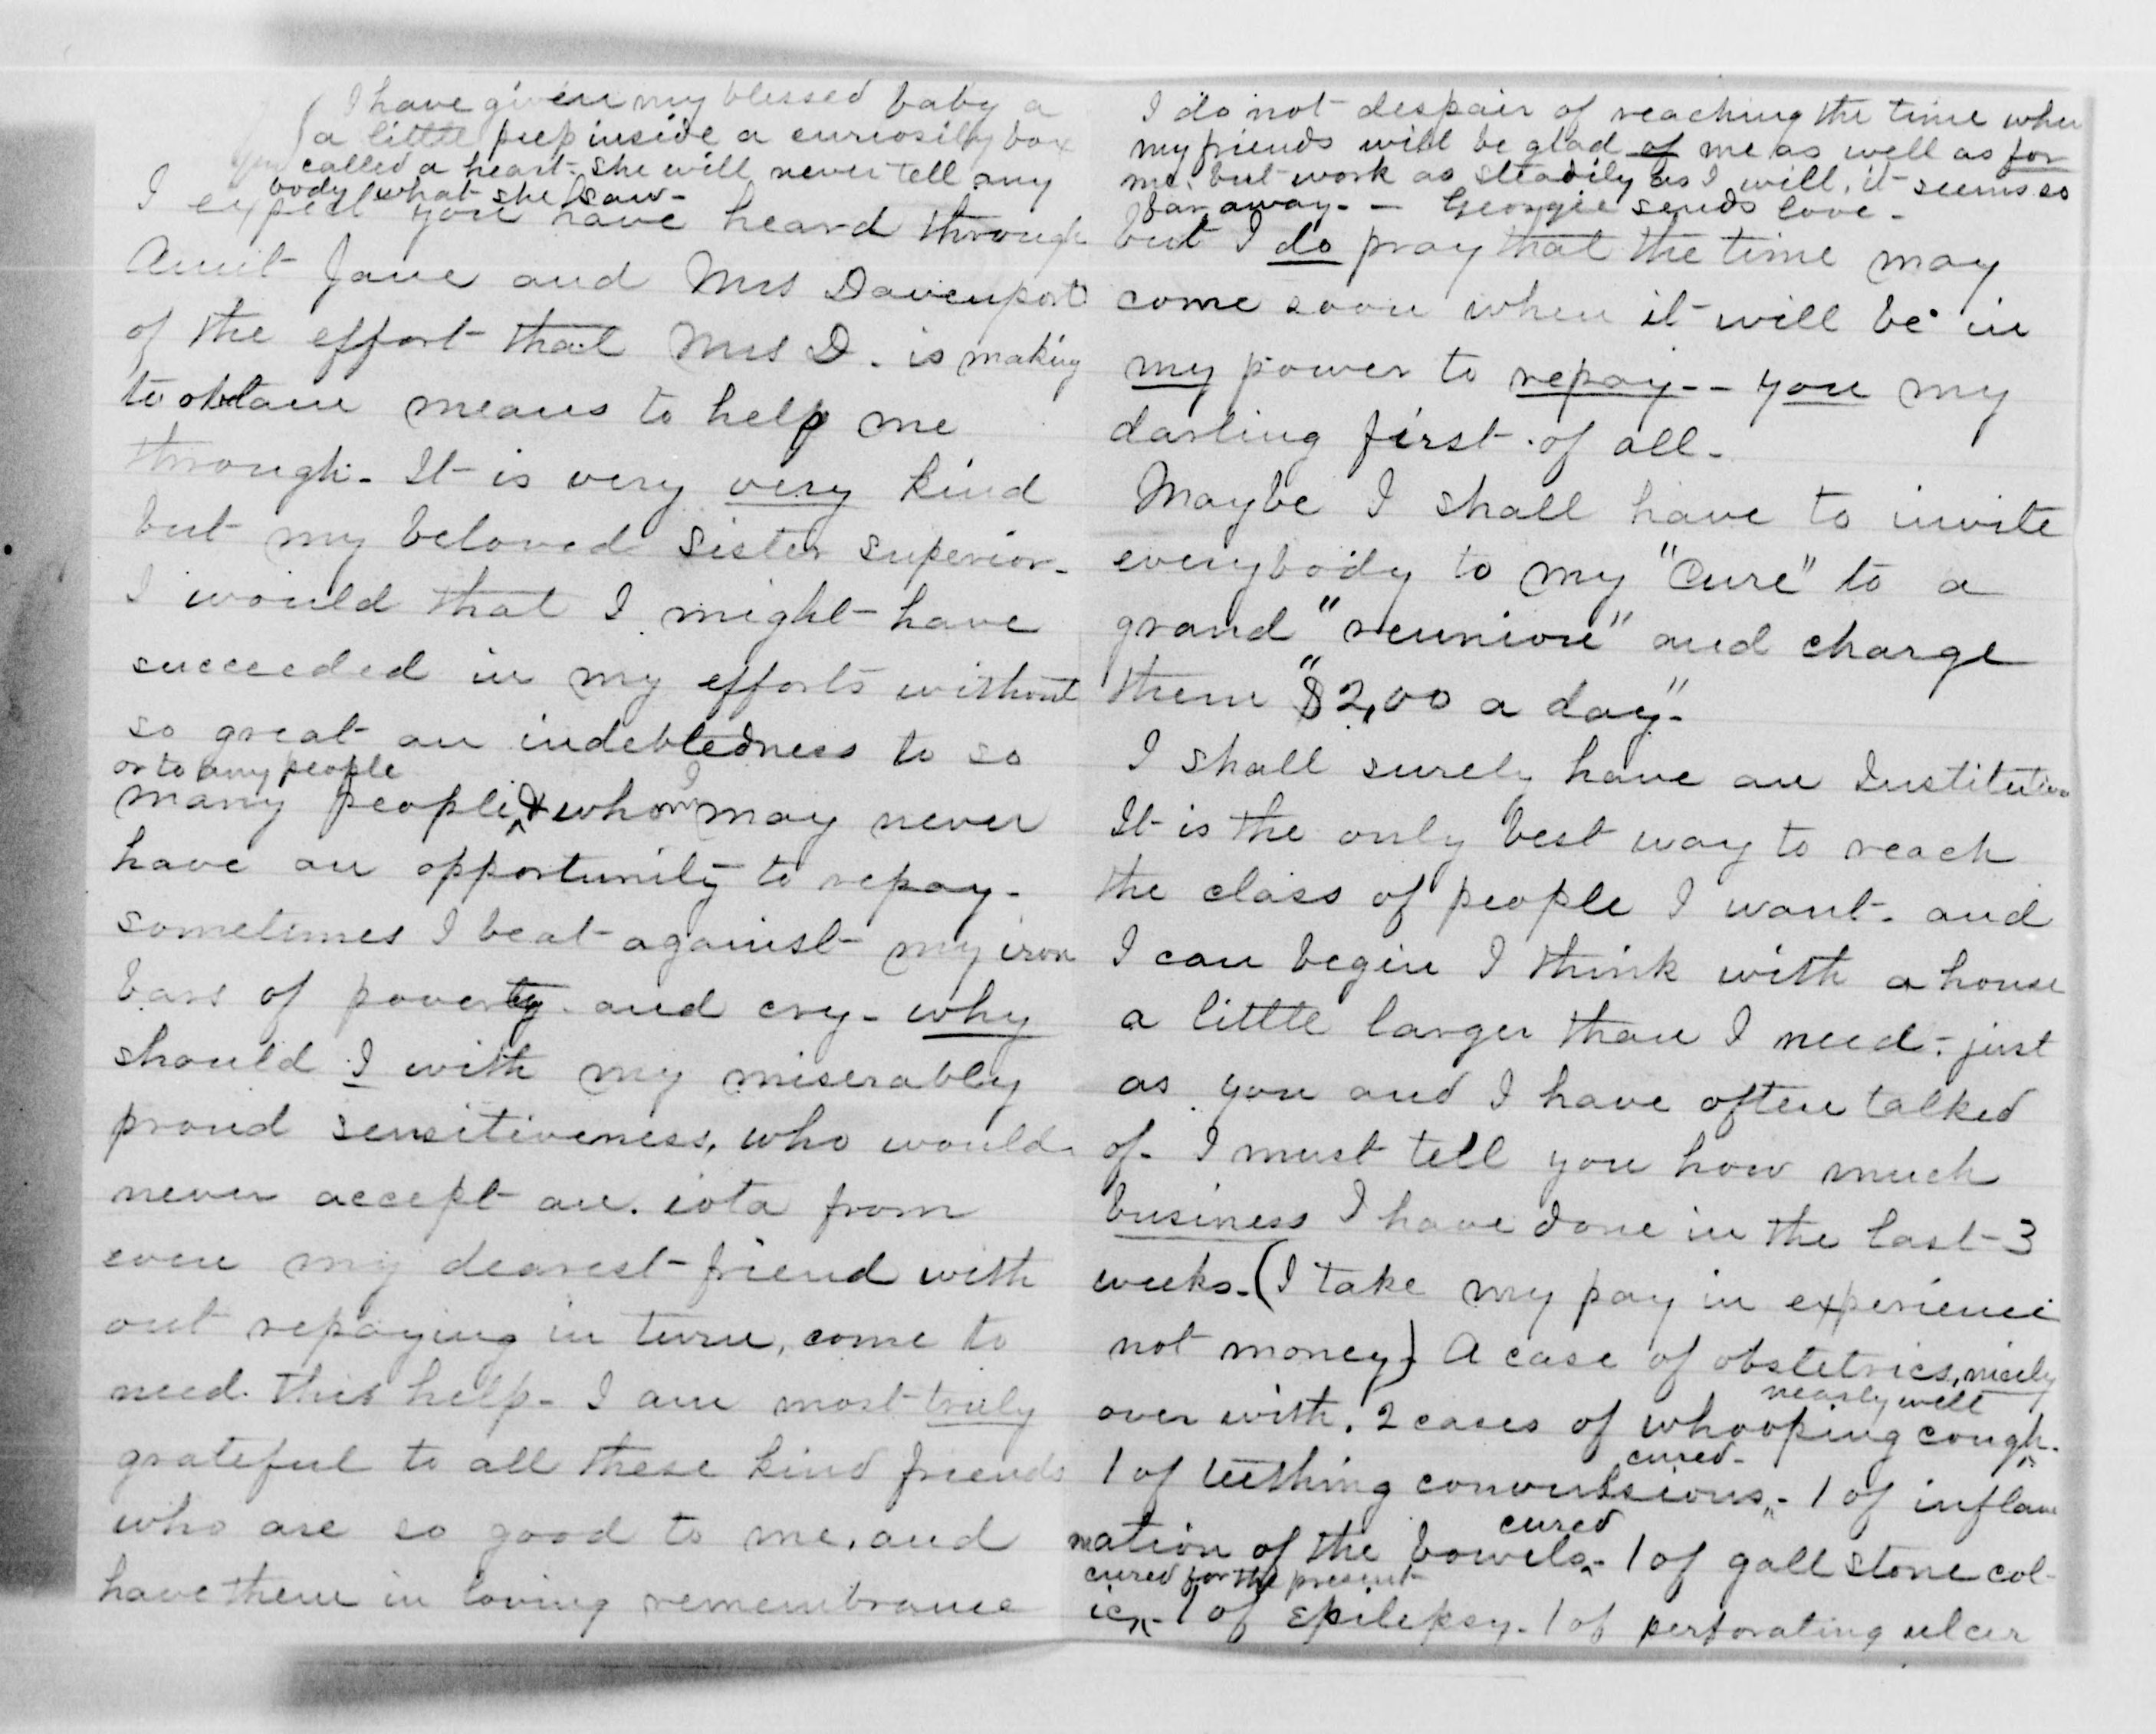 I have given my blessed baby a
a little peep inside a curiosity box
called a heart. She will never tell any
body what she saw-
I expect you have heard through
Aunt Jane and Mrs Davenport
of the effort that Mrs D. is making
to obtain means to help me
through. It is very very kind
but my beloved sister superior-
I would that I might have
succeeded in my efforts without
so great an indebtedness to so
or to any people
many people & whom I may never
have an opportunity to repay-
sometimes I beat against my iron
bars of poverty and cry- why
should I with my miserably
proud sensitiveness, who would
never accept an iota from
even my dearest friend with
out repaying in turn, come to
need this help- I am most truly
grateful to all these kind friends
who are so good to me, and
have them in loving remembrance
I do not despair of reaching the time when
my friends will be glad of me as well as for
me, but work as steadily as I will, it seems so
far away. - Georgie sends love-
but I do pray that the time may
come soon when it will be in
my power to repay-- you my
darling first of all-
Maybe I shall have to invite
everybody to my "Cure" to a
grand "reunion" and charge
them "$2,00 a day"-
I shall surely have an Institution
It is the only best way to reach
the class of people I want- and
I can begin I think with a house
a little larger than I need- just
as you and I have often talked
of- I must tell you how much
business I have done in the last 3
weeks- (I take my pay in experience
not money) A case of obstetrics, nicely
nearly well
over with. 2 cases of whooping cough-
cured-
1 of teething convulsions- 1 of inflam
cured
mation of the bowels- 1 of gall stone col-
cured for the present
ic- 1 of Epilepsy- 1 of perforating ulcer